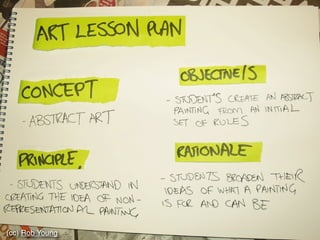 ART LESSON PLAN
CONCEPT
- ABSTRACT ART
OBJECTIVE/S
- STUDENT'S CREATE AN ABSTRACT
PAINTING FROM AN INITIAL
SET OF RULES
PRINCIPLE.
- STUDENTS UNDERSTAND IN
CREATING THE IDEA OF NON-
REPRESENTATIONAL PAINTING
RATIONALE
- STUDENTS BROADEN THEIR
IDEAS OF WHAT A PAINTING
IS FOR AND CAN BE
(cc) Rob Young